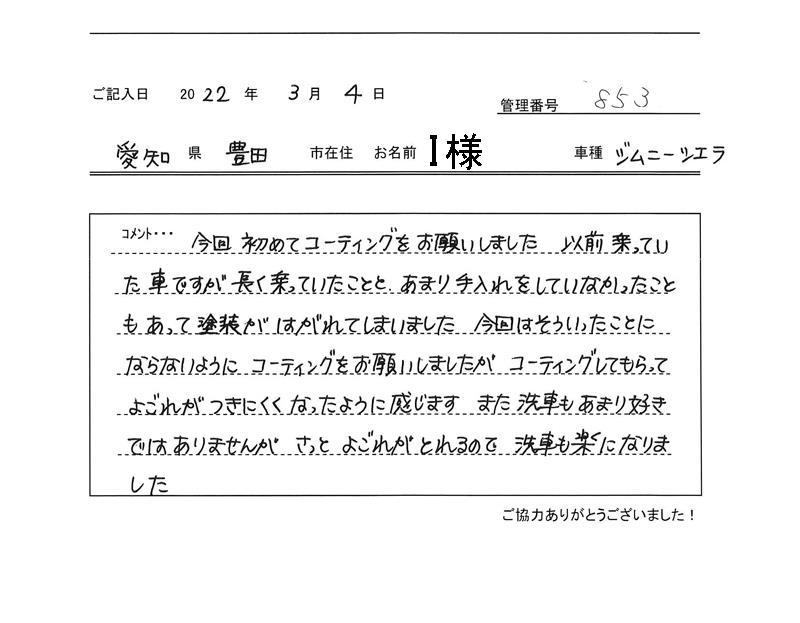 ご記入日 2022年 3月 4日
管理番号 853
愛知 県 豊田 市在住 お名前 I様 車種 ジムニーシエラ
コメント・・・ 今回 初めてコーティングをお願いしました 以前乗ってい
た車ですが長く乗っていたことと あまり手入れをしていなかったこと
もあって塗装がはがれてしまいました 今回はそういったことに
ならないように コーティングをお願いしましたが コーティングしてもらって
よごれがつきにくくなったように感じます また洗車もあまり好き
ではありませんが さっと よごれがとれるので 洗車も楽になりま
した
ご協力ありがとうございました！